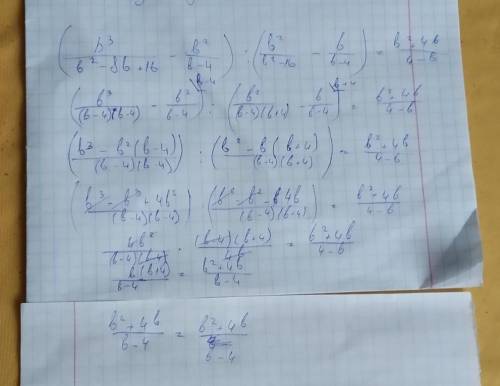 (b³/(b²-8b+16) - b²/(b-4)) : (b²/(b²-16) - b/(b-4)) = (b²+4b)/(4-b)
(b³/((b-4)(b-4)) - b²/(b-4)^(b-4)) : (b²/((b-4)(b+4)) - b/(b-4)^(b+4)) = (b²+4b)/(4-b)
((b³-b²(b-4))/((b-4)(b-4))) : ((b²-b(b+4))/((b-4)(b+4))) = (b²+4b)/(4-b)
((b³-b³+4b²)/((b-4)(b-4))) : ((b²-b²-4b)/((b-4)(b+4))) = (b²+4b)/(4-b)
4b²/((b-4)(b-4)) · ((b-4)(b+4))/4b = (b²+4b)/(4-b)
b(b+4)/(b-4) = (b²+4b)/(b-4)
(b²+4b)/(b-4) = (b²+4b)/(b-4)